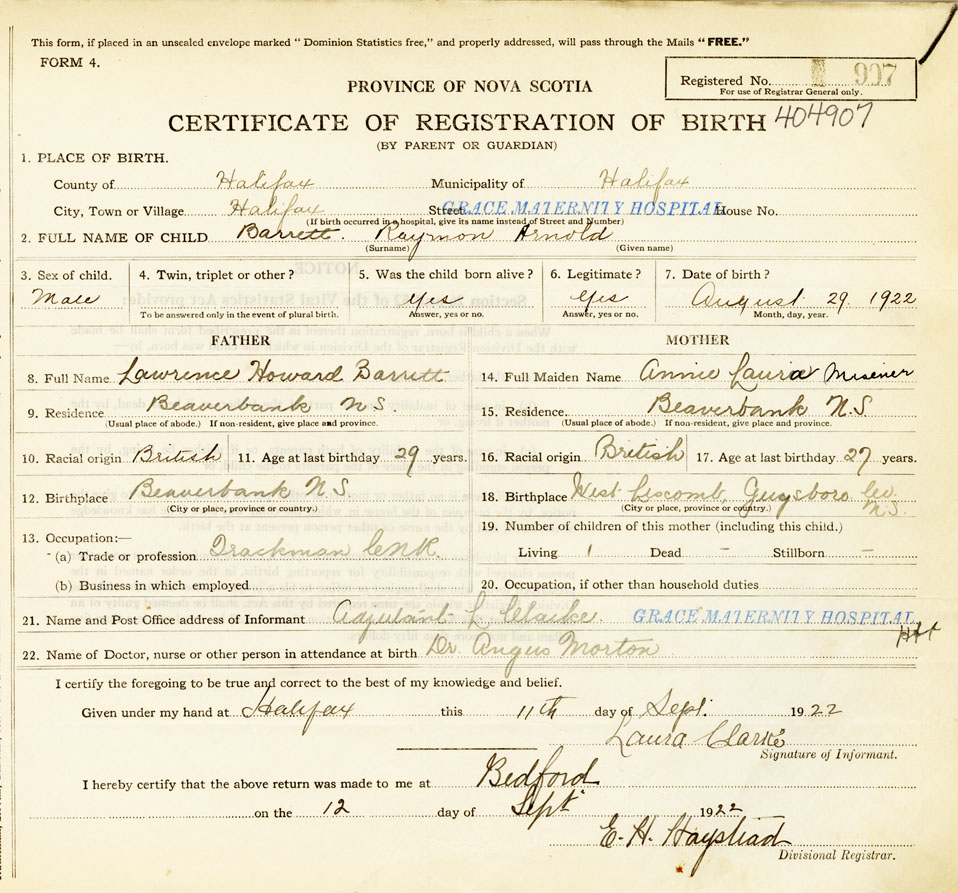 This form, if placed in an unsealed envelope marked "Dominion Statistics free," and properly addressed, will pass through the Mails "FREE."
FORM 4.
Registered No. 907
For use of Registrar General only.
PROVINCE OF NOVA SCOTIA
CERTIFICATE OF REGISTRATION OF BIRTH 404907
(BY PARENT OR GUARDIAN)
1. PLACE OF BIRTH.
County of Halifax Municipality of Halifax
City, Town or Village Halifax Street GRACE MATERNITY HOSPITAL House No.
(If birth occurred in a hospital, give its name instead of Street and Number)
2. FULL NAME OF CHILD Barrett. Raymon Arnold
(Surname) (Given name)
3. Sex of child. 4. Twin, triplet or other? 5. Was the child born alive? 6. Legitimate? 7. Date of birth?
Male Yes Yes August 29. 1922
To be answered only in the event of plural birth. Answer, yes or no. Answer, yes or no. Month, day, year.
FATHER MOTHER
8. Full Name Lawrence Howard Barrett 14. Full Maiden Name Annie Laura Misener
9. Residence Beaverbank N.S. 15. Residence. Beaverbank N.S.
(Usual place of abode.) If non-resident, give place and province. (Usual place of abode.) If non-resident, give place and province.
10. Racial origin British 11. Age at last birthday 29 years. 16. Racial origin British 17. Age at last birthday 27 years.
12. Birthplace Beaverbank N.S 18. Birthplace West Liscomb, Guysboro Co. N.S.
(City or place, province or country.) (City or place, province or country.)
19. Number of children of this mother (including this child.)
13. Occupation:—
(a) Trade or profession Trackman CNR. Living 1 Dead – Stillborn –
(b) Business in which employed 20. Occupation, if other than household duties
21. Name and Post Office address of Informant Adjutant L Clarke. GRACE MATERNITY HOSPITAL
22. Name of Doctor, nurse or other person in attendance at birth Dr. Angus Morton
I certify the foregoing to be true and correct to the best of my knowledge and belief.
Given under my hand at Halifax this 11th day of Sept. 1922
Laura Clarke
Signature of Informant.
I hereby certify that the above return was made to me at Bedford
on the 12 day of Sept 1922
E. H. Haystead
Divisional Registrar.